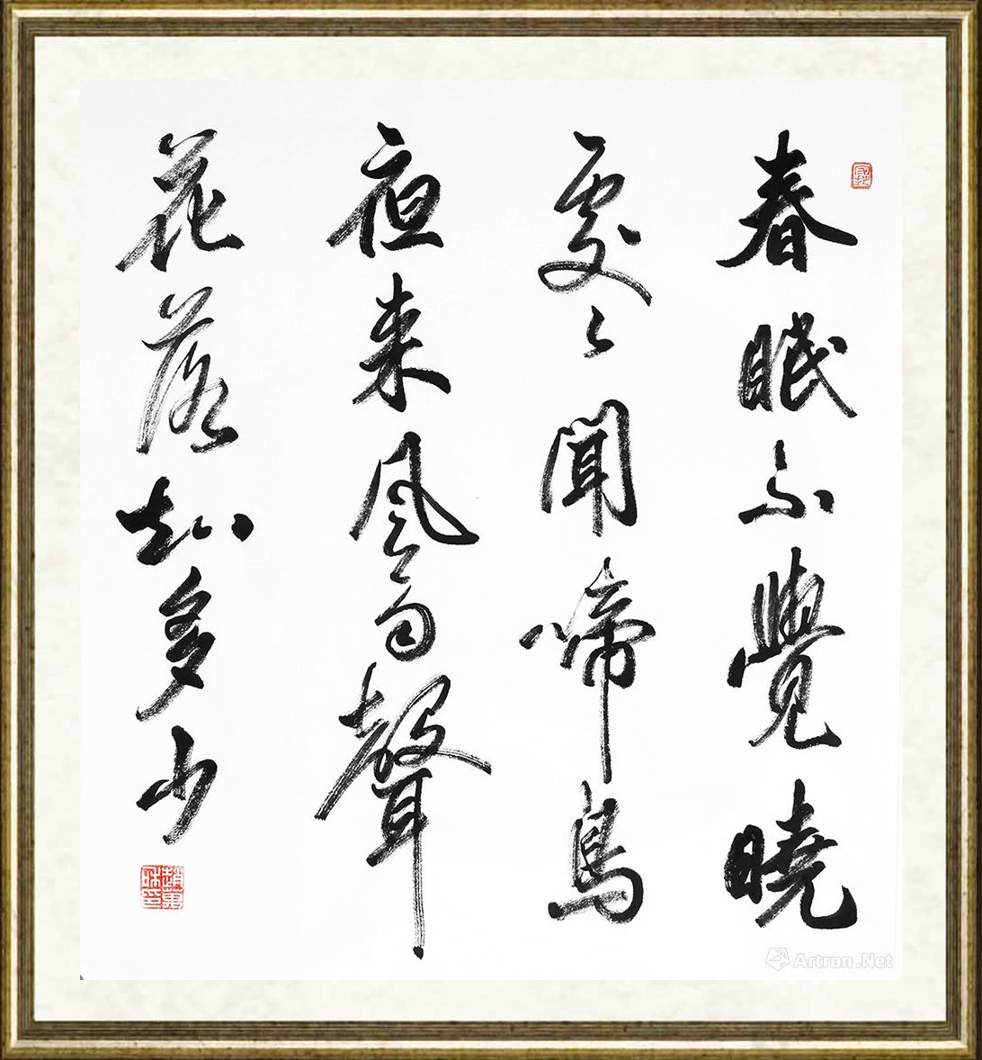 春眠不覺曉
處々聞啼鳥
夜来風雨聲
花落知多少
Artron.Net